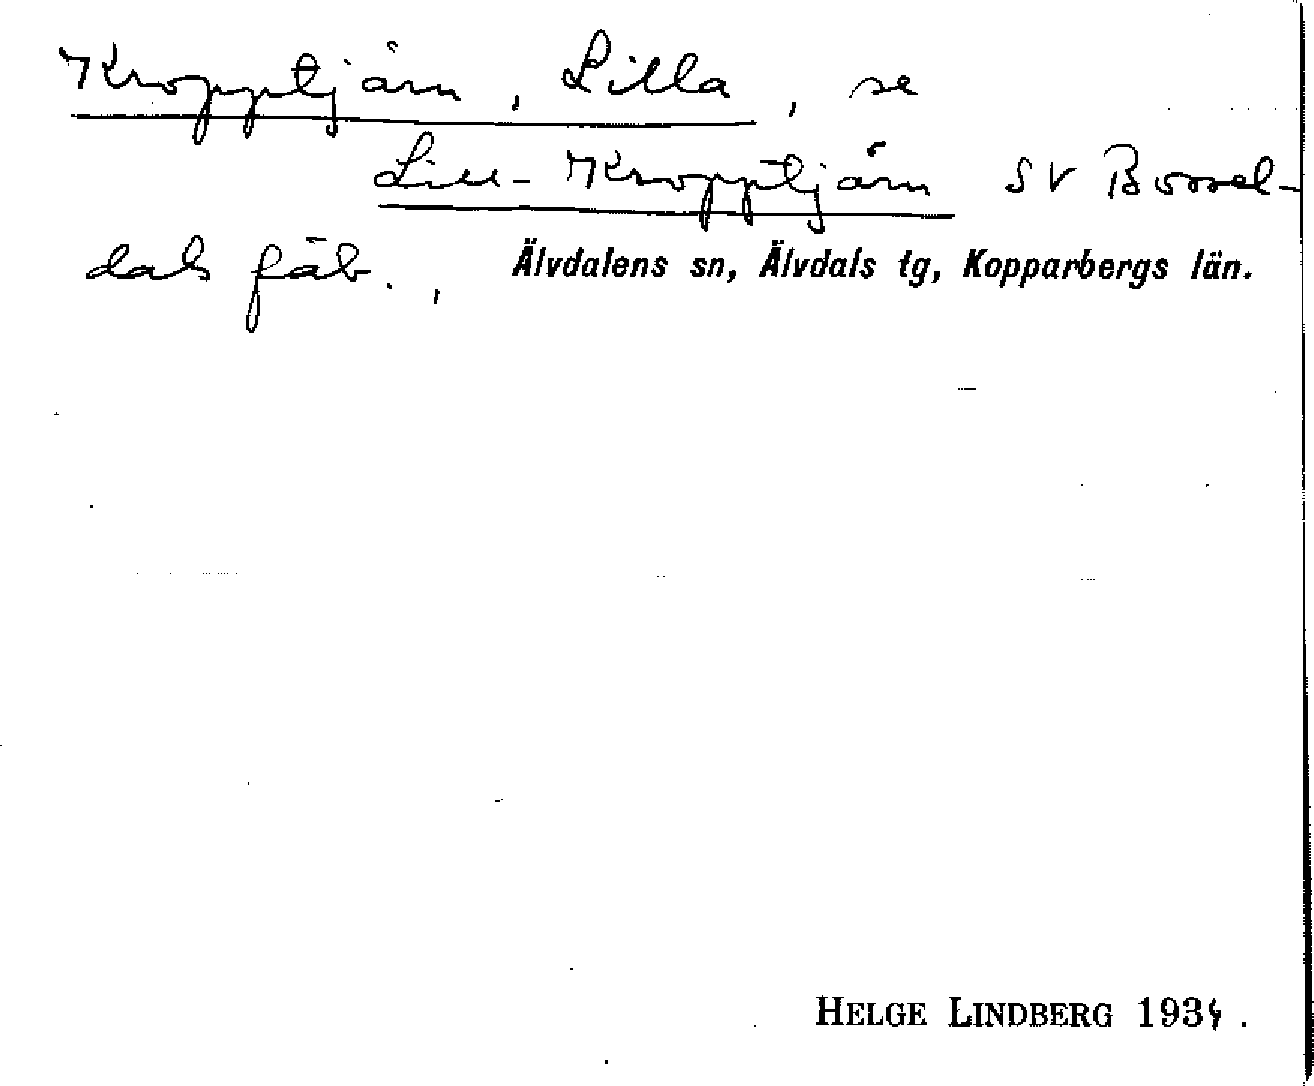 Kropptjärn, Lilla, se
Lill-Kropptjärn SV Borrel-
dals fäb., Älvdalens sn, Älvdals tg, Kopparbergs län.
HELGE LINDBERG 1934.